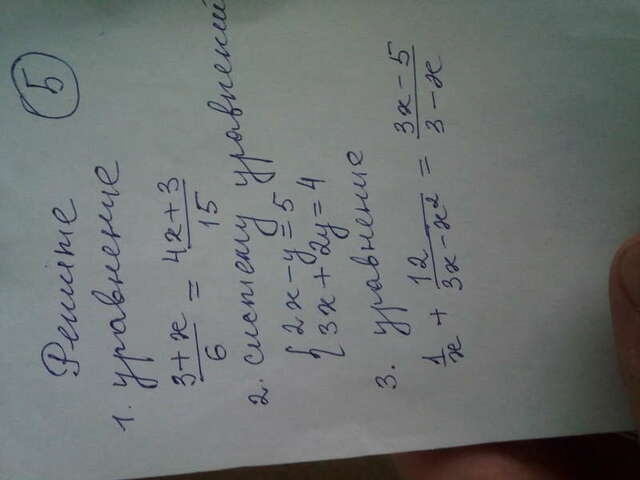 Решите
5
1. уравнение
3+x/6 = 4x+3/15
2. систему уравнений
{2x-y=5
3x+2y=4
3. уравнение
1/x + 12/3x-x² = 3x-5/3-x